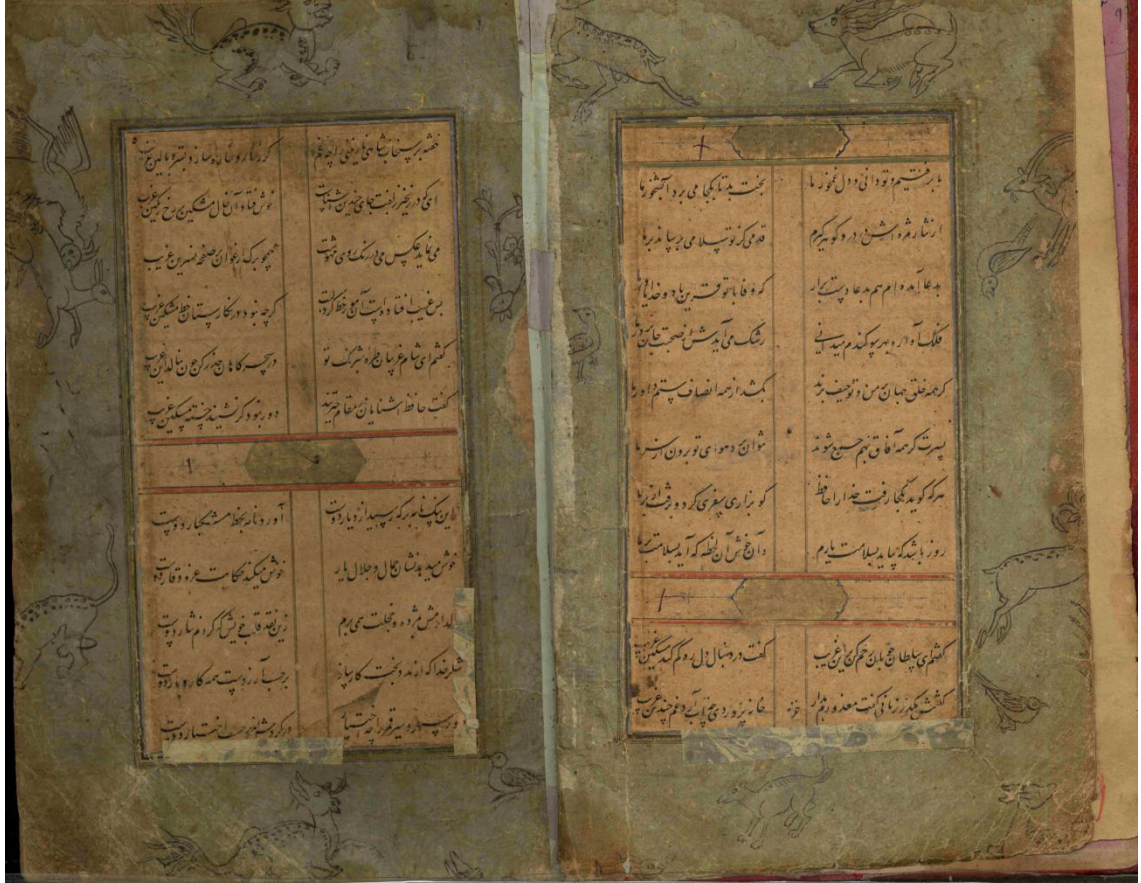 ما برفتیم و تو دانی و دل غمخور ما بخت بد تا بکجا می برد آبشخور ما
از نثار مژه اش در در و گوهر گیرم کز تو سلامی برساند بر ما
بدعا آمده ام هم بدعا دست برآر که وفا با تو قرین باد و خدا یاور ما
فلک آواره بهر سو کندم میدانی رشک می آیدش از صحبت جان پرور ما
گر همه خلق جهان بر من و تو حیف برند بکشد از همه انصاف ستم داور ما
بسرت گر همه آفاق بهم جمع شوند نتوان برد هوای تو برون از سر ما
هر که گوید که کجا رفت خدا را حافظ گو بزاری سفری کرد و برفت از بر ما
روز باشد که بیاید بسلامت یارم وان خوش آن لحظه که آید بسلامت بر ما
گفتم ای سلطان خوبان رحم کن بر این غریب گفت در دنبال دل ره گم کند مسکین غریب
گفتمش مگذر زمانی گفت معذورم بدار خانه پروردی چه تاب آرد غم چندین غریب
خفته بر سنجاب شاهی نازنینی را چه غم گر ز خار و خاره سازد بستر و بالین غریب
ای که در زنجیر زلفت جای چندین آشناست خوش فتاد آن خال مشکین بر رخ رنگین غریب
می نماید عکس می در رنگ روی مهوشت همچو برگ ارغوان بر صفحه نسرین غریب
بس غریب افتاده است آن مور خط گرد رخت گرچه نبود در نگارستان خط مشکین غریب
گفتم ای شام غریبان طره شبرنگ تو در سحرگاهان حذر کن چون بنالد این غریب
گفت حافظ آشنایان در مقام حیرتند دور نبود گر نشیند خسته و مسکین غریب
این پیک نامه بر که رسید از دیار دوست آورد نامه بخط مشکبار دوست
خوش میدهد نشان جمال و جلال یار خوش میکند حکایت عز و وقار دوست
دل دادمش بمژده و خجلت همی برم زین نقد قلب خویش که کردم نثار دوست
شکر خدا که از مدد بخت کارساز بر حسب آرزوست همه کار و بار دوست
سیر سپهر و دور قمر را چه اختیار در گردشند بر حسب اختیار دوست